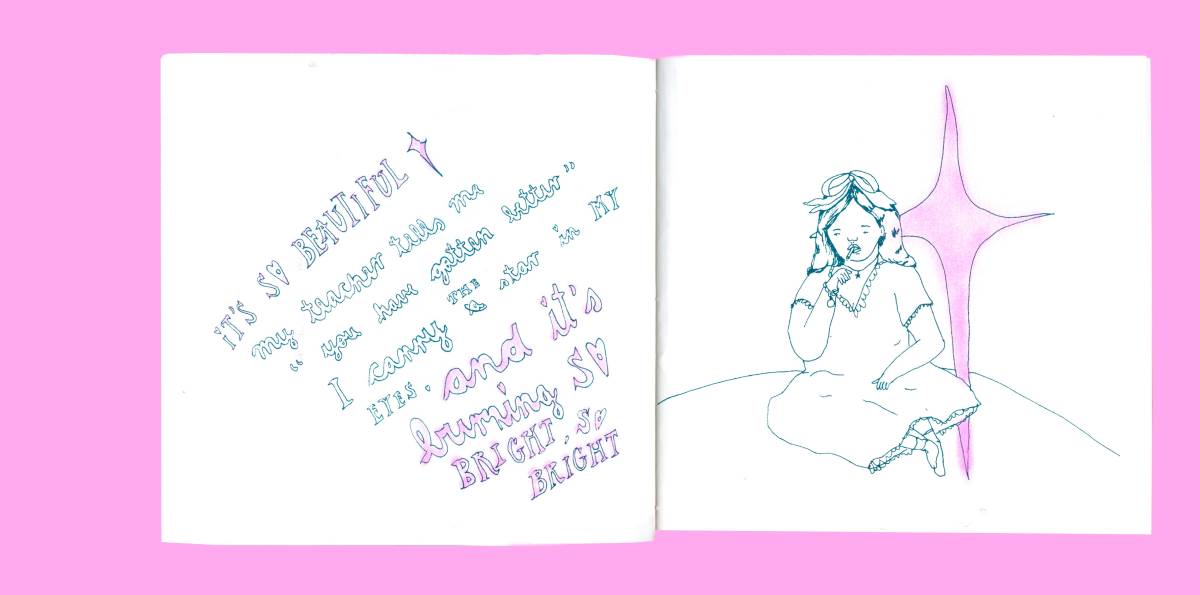 iT'S S♡ BEAUTIFUL
my teacher tells me
"you have gotten better"
I carry THE star in MY
EYES. and it's
burning S♡
BRIGHT, S♡
BRIGHT